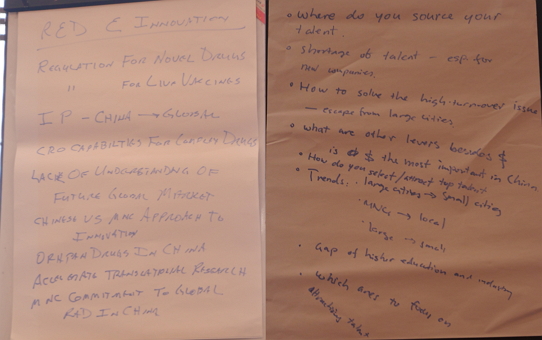 R&D & INNOVATION
REGULATION FOR NOVEL DRUGS
" FOR LIVE VACCINES
IP - CHINA → GLOBAL
CRO CAPABILITIES FOR COMPLEX DRUGS
LACK OF UNDERSTANDING OF
FUTURE GLOBAL MARKET
CHINESE VS MNC APPROACH TO
INNOVATION
ORPHAN DRUGS IN CHINA
ACCELERATE TRANSLATIONAL RESEARCH
MNC COMMITMENT TO GLOBAL
R&D IN CHINA
• Where do you source your
talent.
• shortage of talent - esp for
new companies.
• How to solve the high-turnover issue
- escape from large cities
• what are other levers besides $
is $ the most important in China
• How do you select/attract top talent
• Trends. • large cities → small cities
• MNCs → local
• large → small
• Gap of higher education and industry
• Which ones to focus on
attracting talent